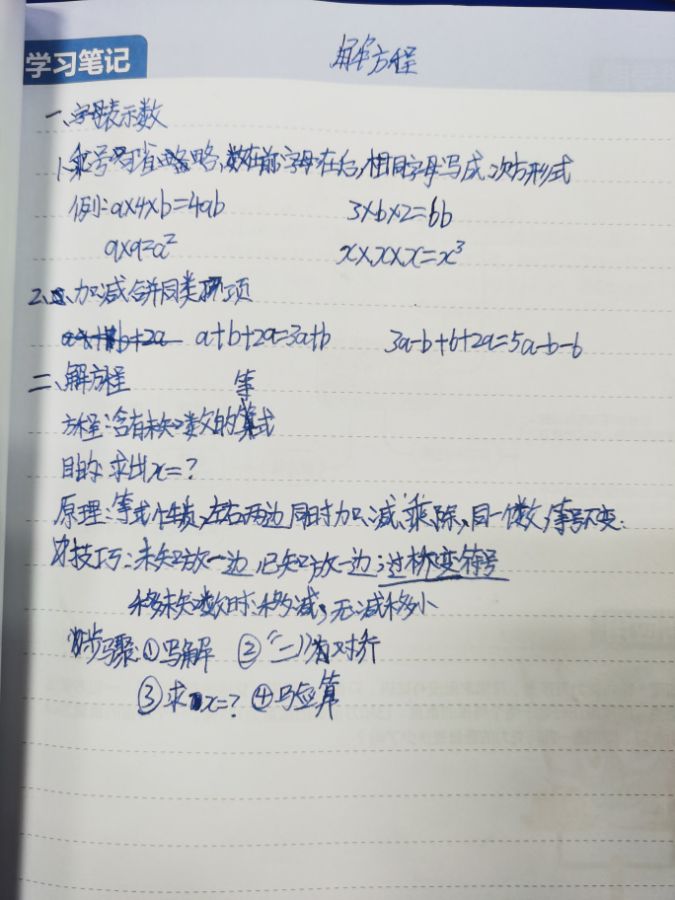 学习笔记
解方程
一、字母表示数
1、乘号可省略略,数在前字母在后,相同字母写成次方形式
例:a×4×b=4ab 3×b×2=6b
a×a=a²  x×x×x=x³
2、加减合并同类项
a+b+2a=3a+b 3a-b+6+2a=5a-b-6
二、解方程 等
方程:含有未知数的算式
目的:求出x=?
原理:等式性质,左右两边同时加、减、乘、除,同一个数,等号不变.
技巧:未知放一边,已知放一边;过桥变符号
移未知数时:移减,无减移小
步骤:①写解 ②"="对齐
③求x=? ④写验算